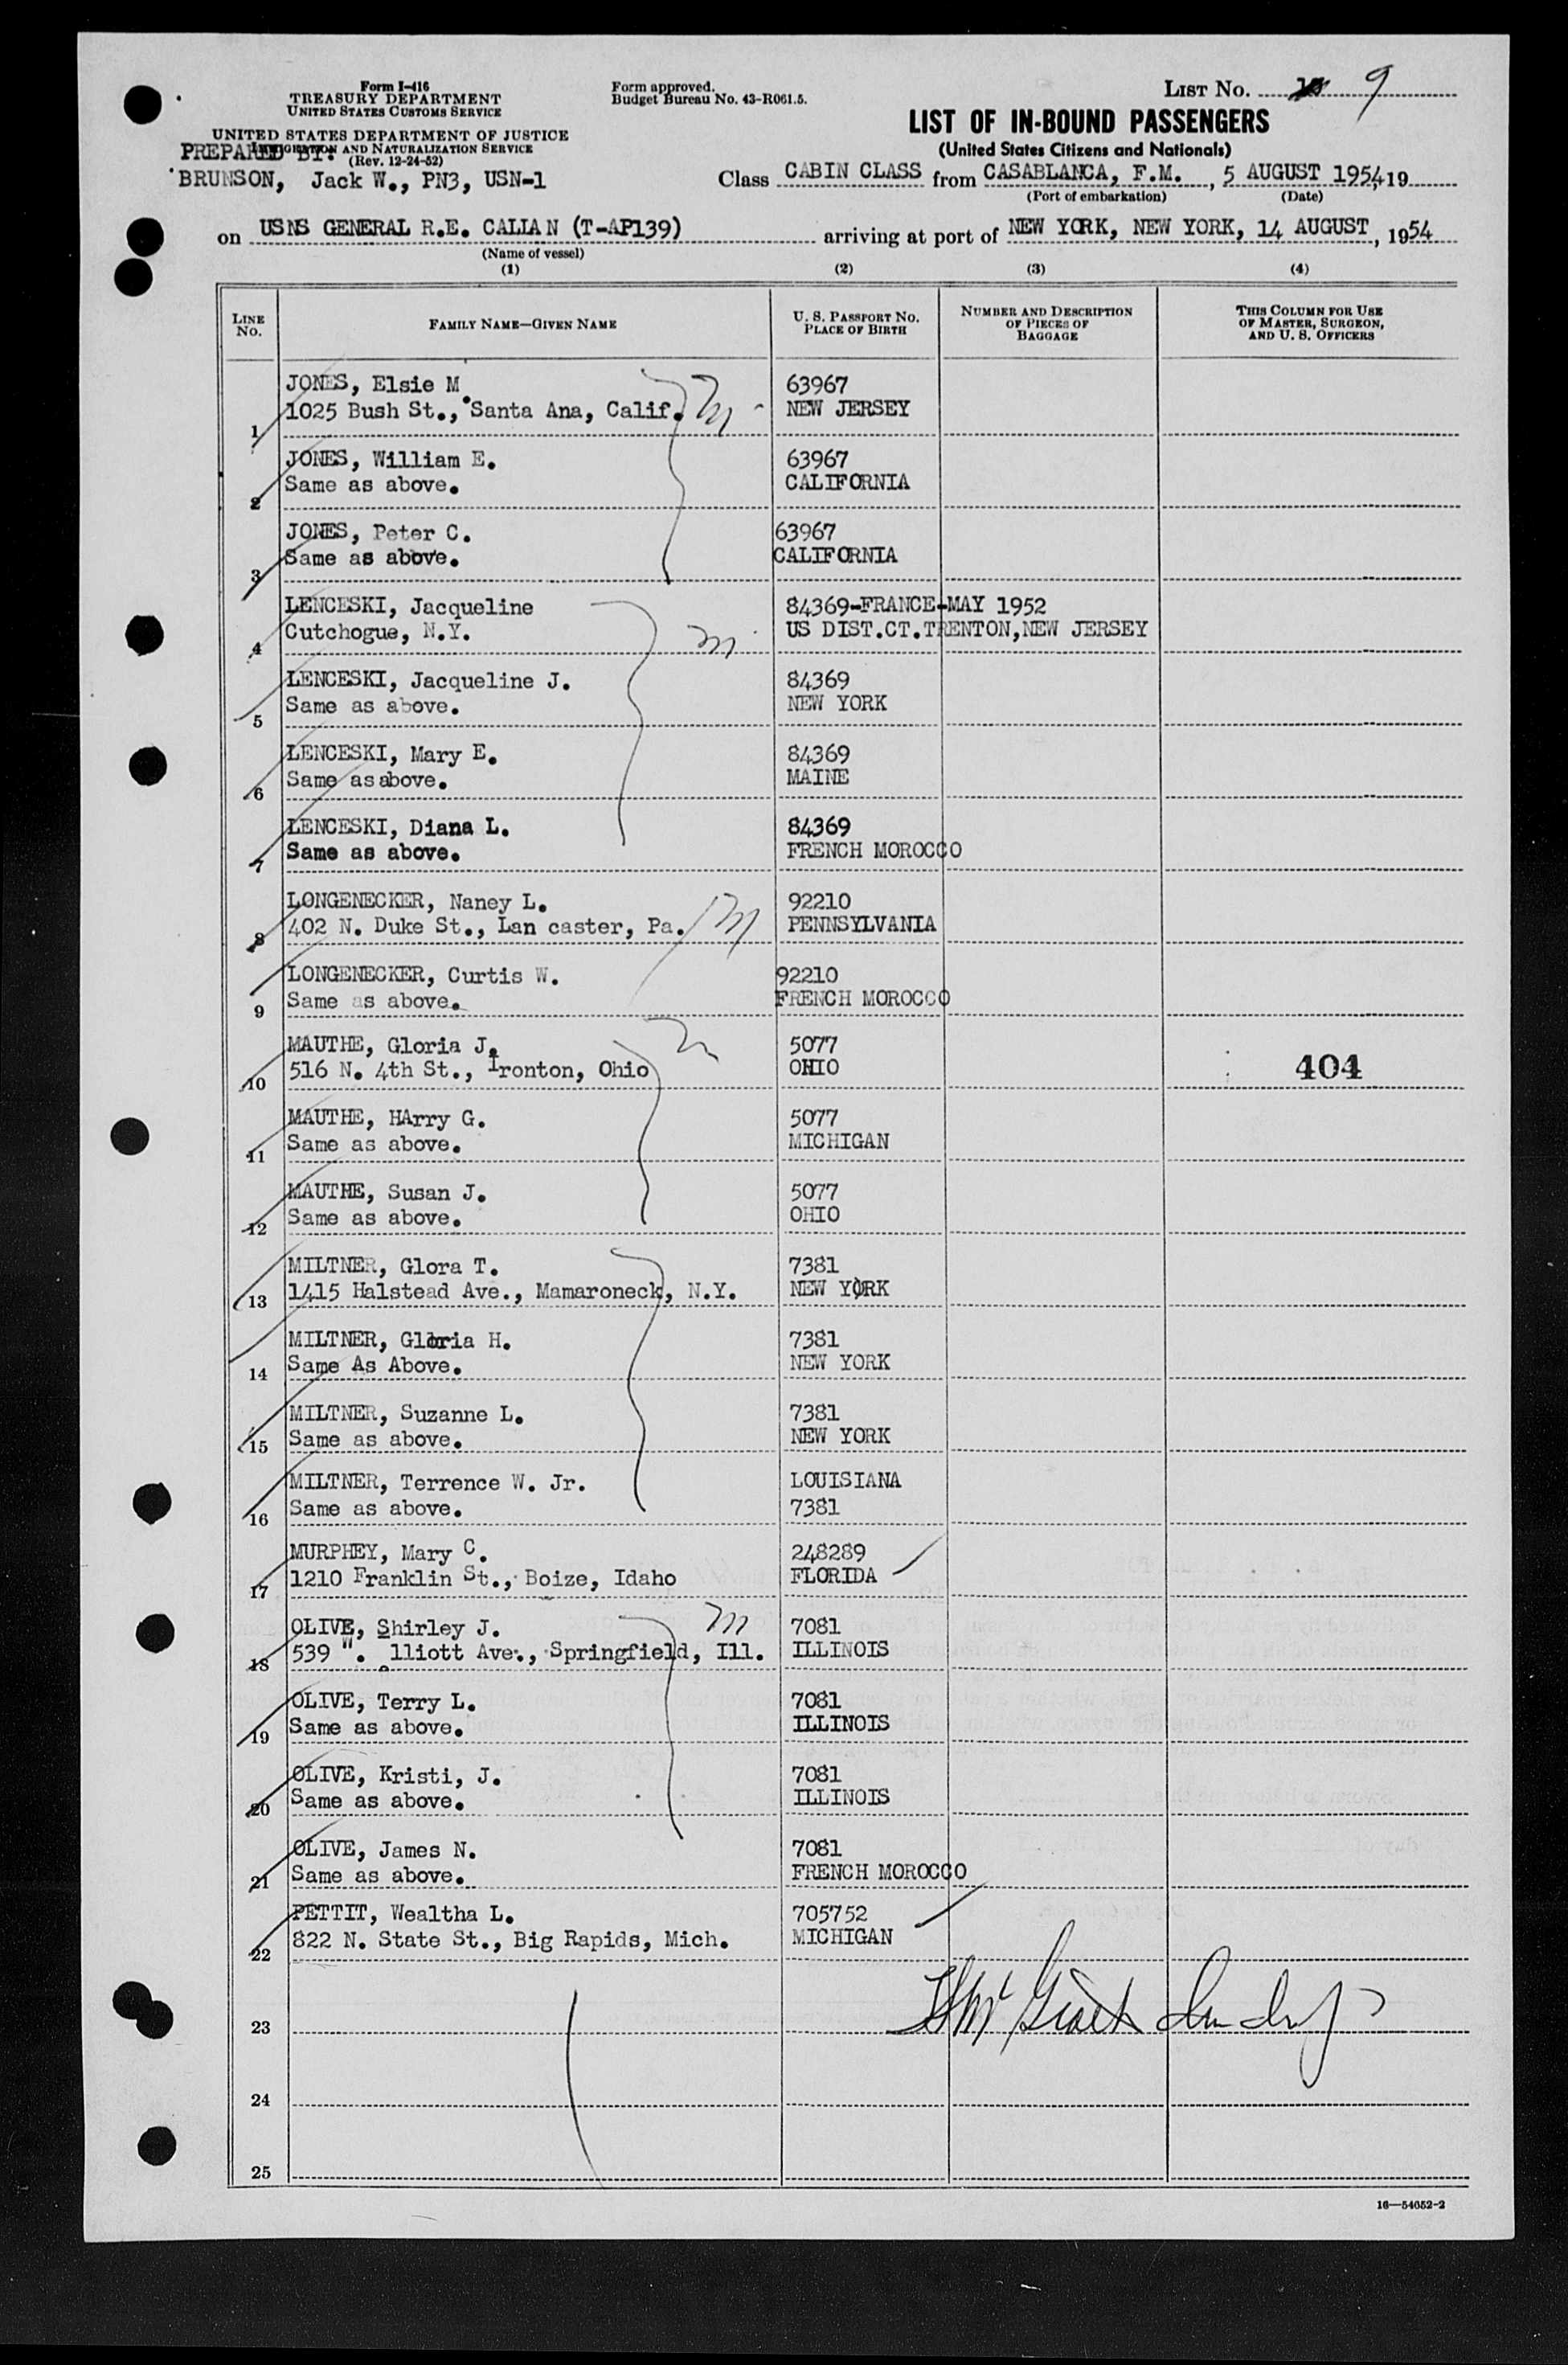 Form I-416
TREASURY DEPARTMENT
UNITED STATES CUSTOMS SERVICE
UNITED STATES DEPARTMENT OF JUSTICE
IMMIGRATION AND NATURALIZATION SERVICE
(Rev. 12-24-52)
PREPARED BY:
BRUNSON, Jack W., PN3, USN-1
Form approved.
Budget Bureau No. 43-R061.5.
LIST NO. 9
LIST OF IN-BOUND PASSENGERS
(United States Citizens and Nationals)
Class CABIN CLASS from CASABLANCA, F.M. , 5 AUGUST 1954, 19
(Port of embarkation) (Date)
on USNS GENERAL R.E. CALLAN (T-AP139) arriving at port of NEW YORK, NEW YORK, 14 AUGUST , 1954
(Name of vessel)
(1) (2) (3) (4)
LINE NO. FAMILY NAME—GIVEN NAME U. S. PASSPORT NO. PLACE OF BIRTH NUMBER AND DESCRIPTION OF PIECES OF BAGGAGE THIS COLUMN FOR USE OF MASTER, SURGEON, AND U. S. OFFICERS
JONES, Elsie M 63967
1 1025 Bush St., Santa Ana, Calif. m NEW JERSEY
JONES, William E. 63967
2 Same as above. CALIFORNIA
JONES, Peter C. 63967
3 Same as above. CALIFORNIA
LENCESKI, Jacqueline 84369-FRANCE-MAY 1952
4 Cutchogue, N.Y. m US DIST.CT.TRENTON,NEW JERSEY
LENCESKI, Jacqueline J. 84369
5 Same as above. NEW YORK
LENCESKI, Mary E. 84369
6 Same as above. MAINE
LENCESKI, Diana L. 84369
7 Same as above. FRENCH MOROCCO
LONGENECKER, Naney L. 92210
8 402 N. Duke St., Lan caster, Pa. m PENNSYLVANIA
LONGENECKER, Curtis W. 92210
9 Same as above. FRENCH MOROCCO
MAUTHE, Gloria J. 5077
10 516 N. 4th St., Ironton, Ohio OHIO 404
MAUTHE, HArry G. 5077
11 Same as above. MICHIGAN
MAUTHE, Susan J. 5077
12 Same as above. OHIO
MILTNER, Glora T. 7381
13 1415 Halstead Ave., Mamaroneck, N.Y. NEW YORK
MILTNER, Gloria H. 7381
14 Same As Above. NEW YORK
MILTNER, Suzanne L. 7381
15 Same as above. NEW YORK
MILTNER, Terrence W. Jr. LOUISIANA
16 Same as above. 7381
MURPHEY, Mary C. 248289
17 1210 Franklin St., Boize, Idaho FLORIDA
OLIVE, Shirley J. m 7081
18 539 W. lliott Ave., Springfield, Ill. ILLINOIS
OLIVE, Terry L. 7081
19 Same as above. ILLINOIS
OLIVE, Kristi, J. 7081
20 Same as above. ILLINOIS
OLIVE, James N. 7081
21 Same as above. FRENCH MOROCCO
PETTIT, Wealtha L. 705752
22 822 N. State St., Big Rapids, Mich. MICHIGAN
23
24
25
16—54052-2